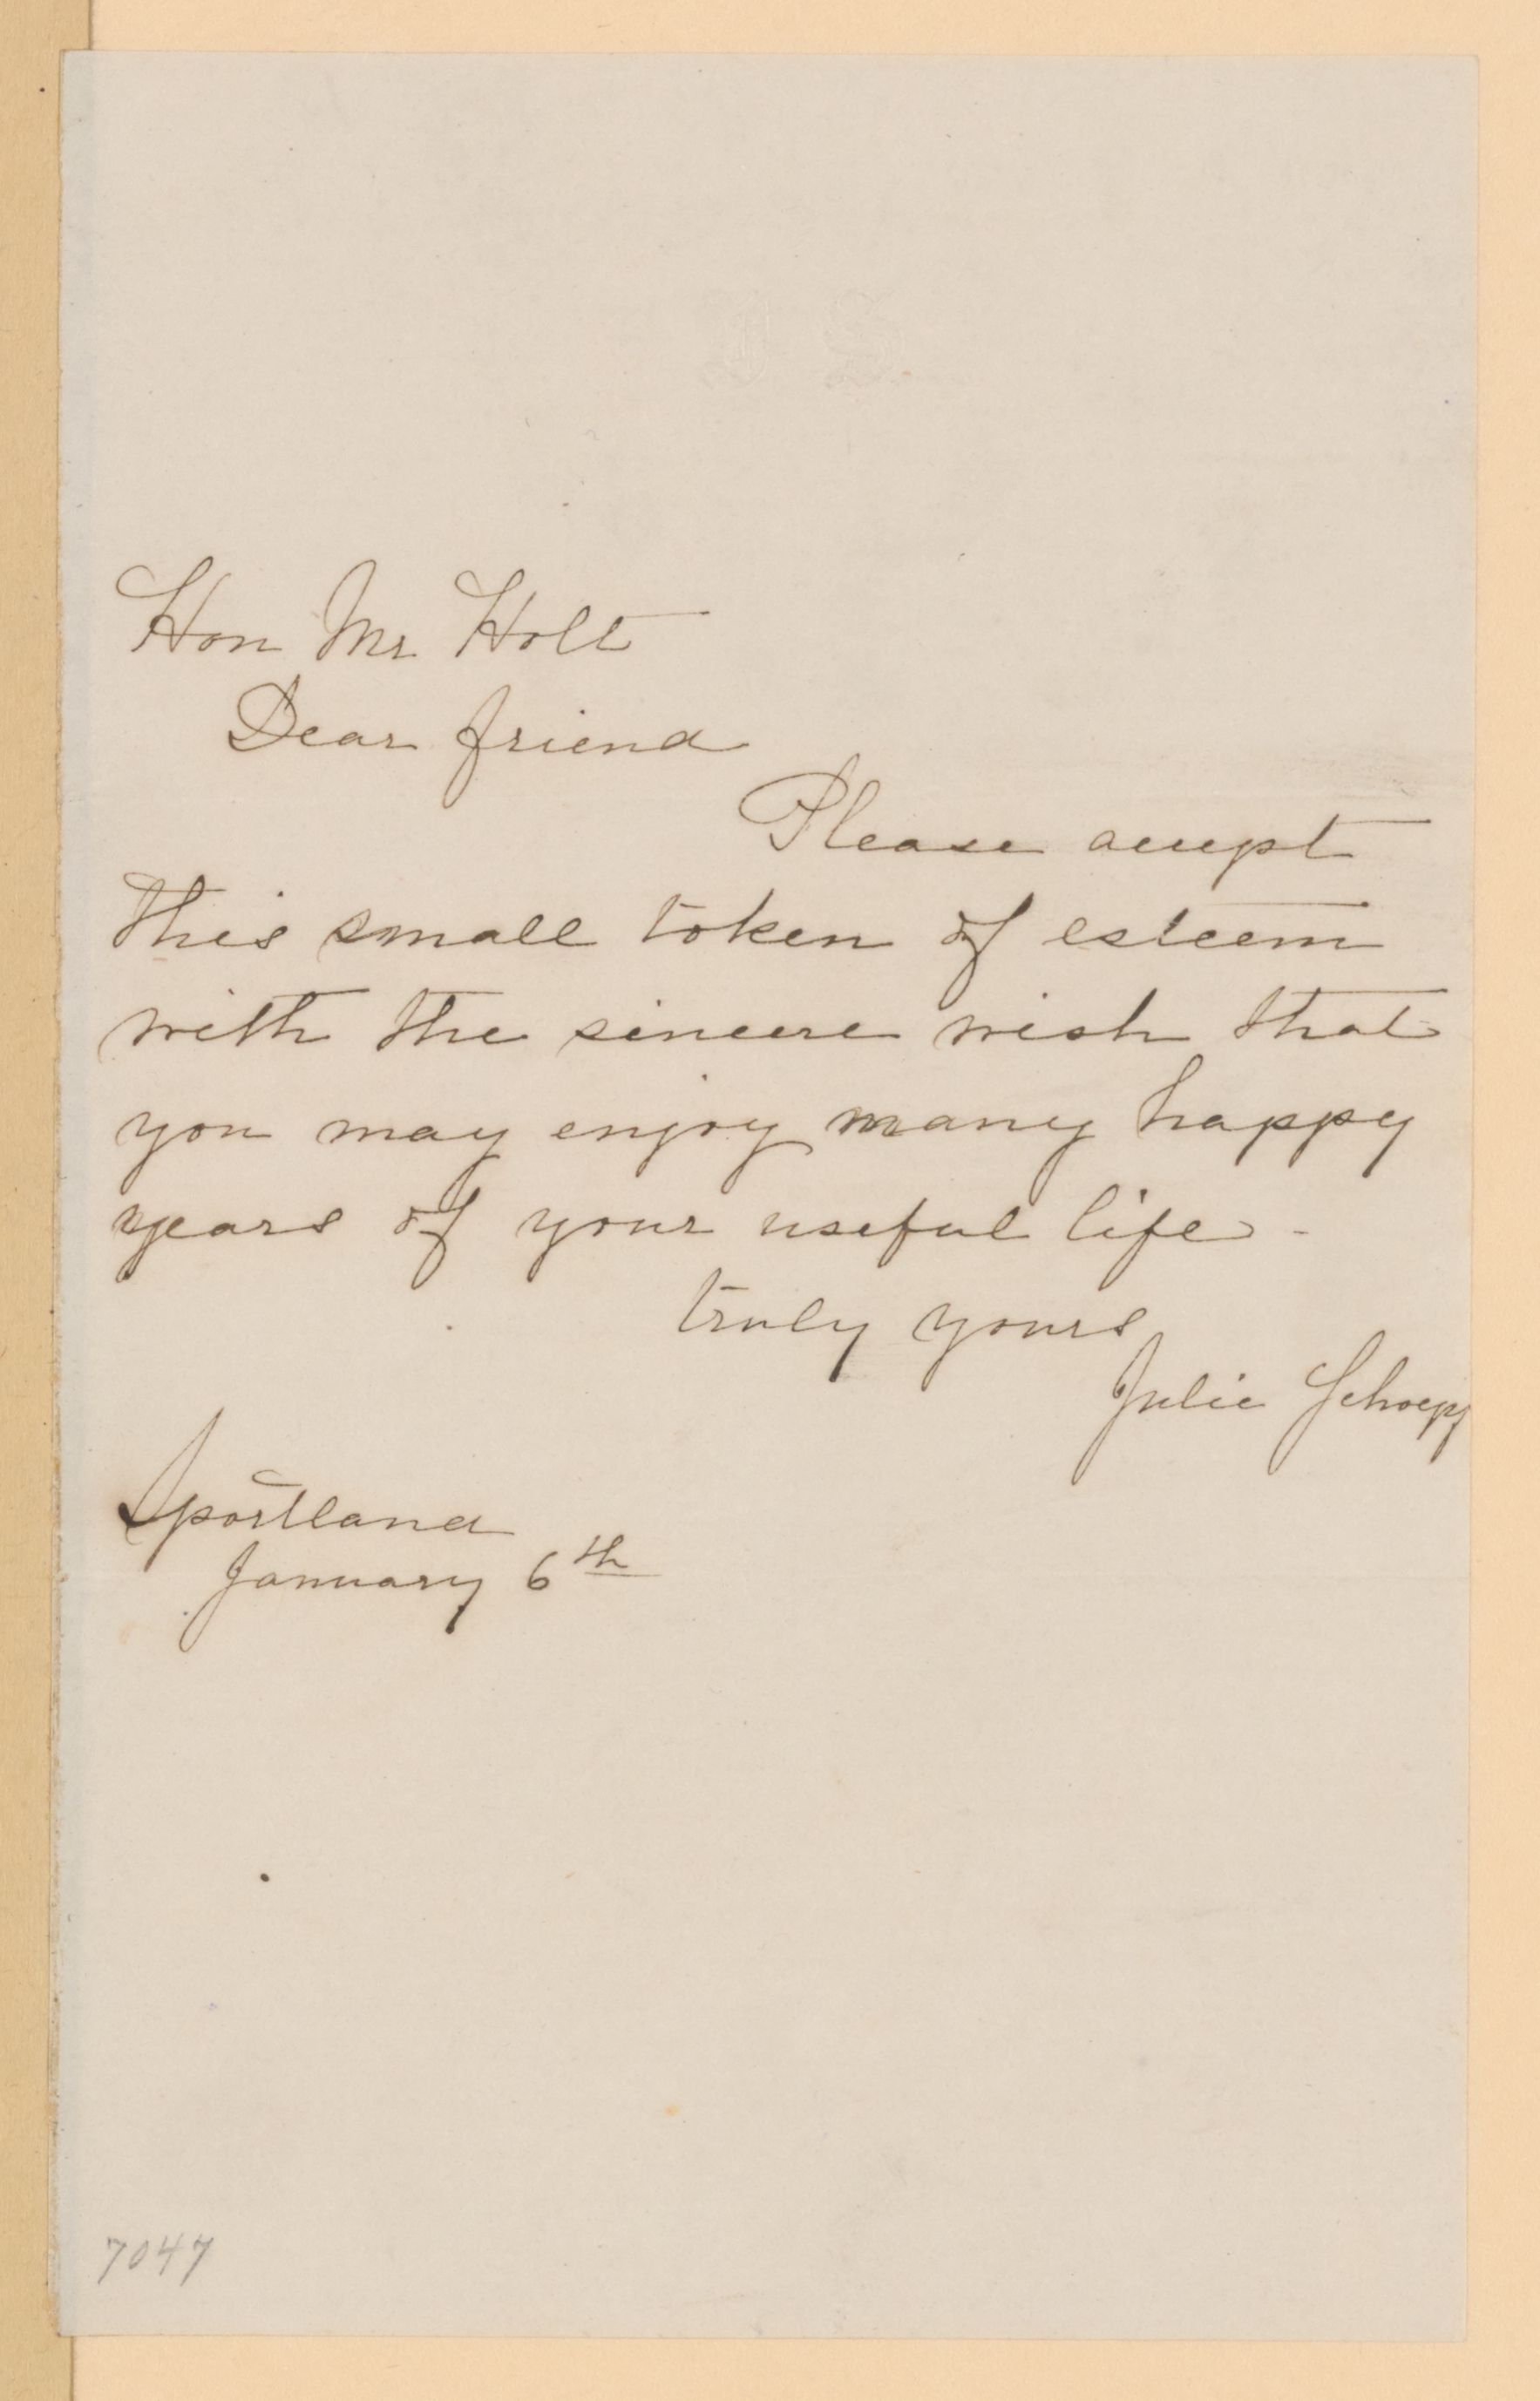 J S
Hon Mr Holt
Dear friend
Please accept
this small token of esteem
with the sincere wish that
you may enjoy many happy
years of your useful life -
truly yours
Julie Schoepf
Sportland
January 6th
7047